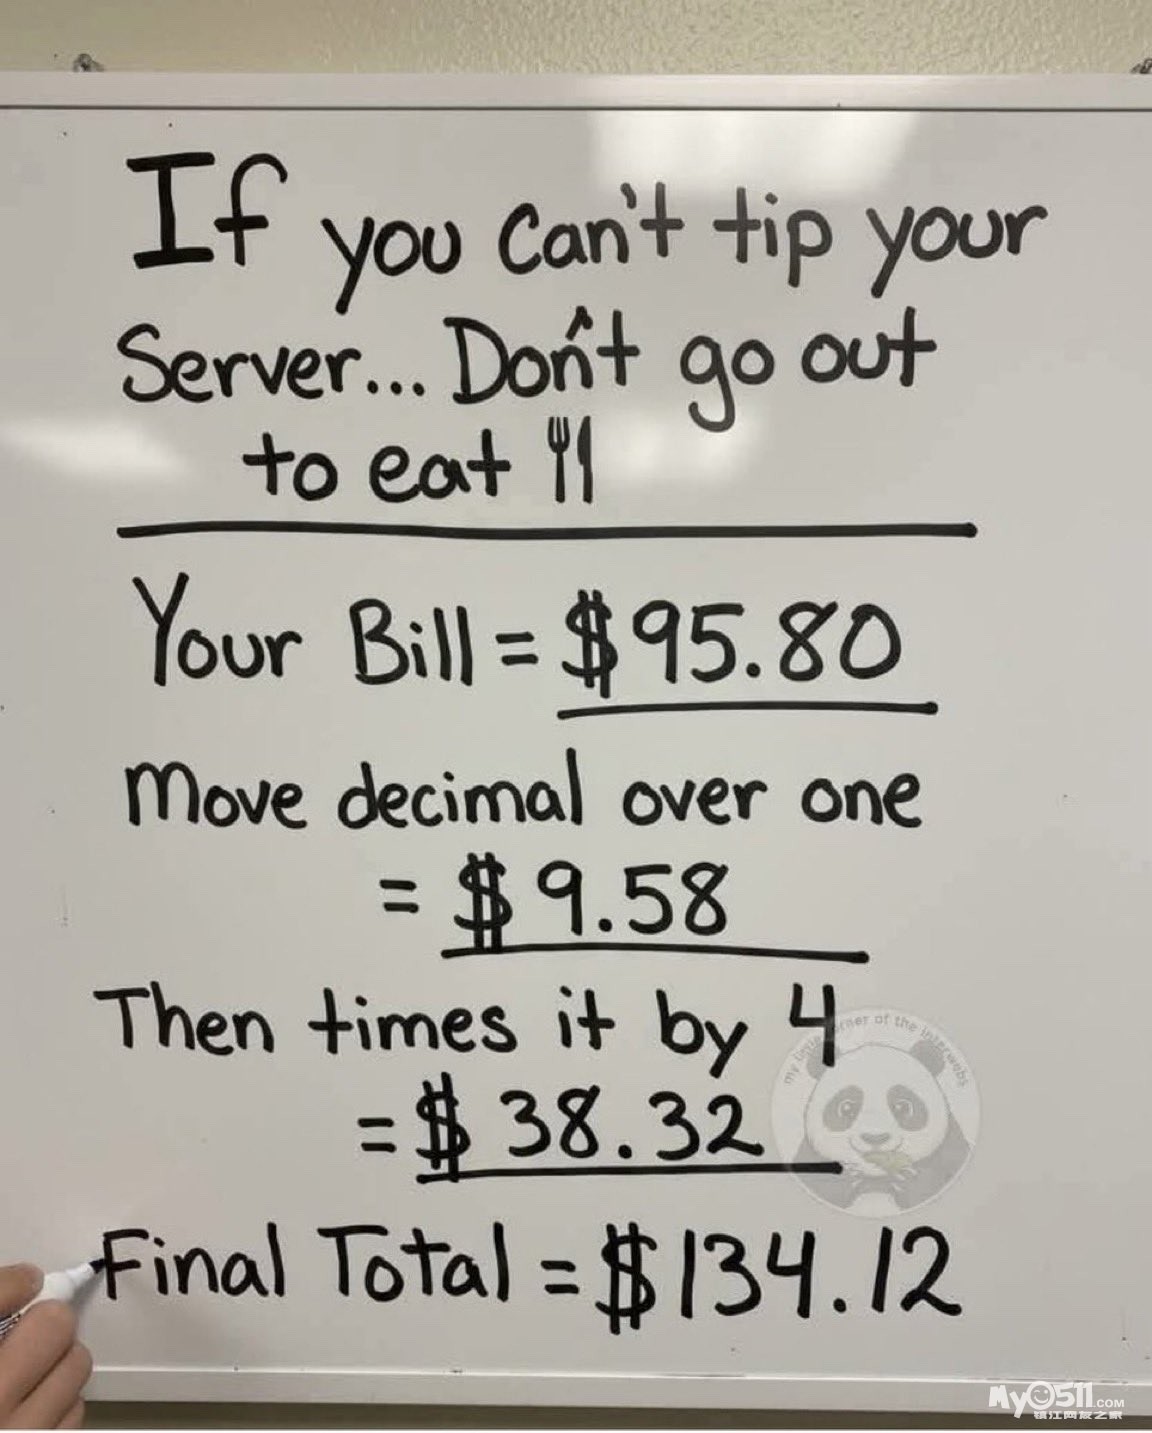 If you can't tip your
Server... Don't go out
to eat
Your Bill = $95.80
Move decimal over one
= $9.58
Then times it by 4
= $38.32
my little corner of the interwebs
Final Total = $134.12
MY0511.COM
镇江网友之家